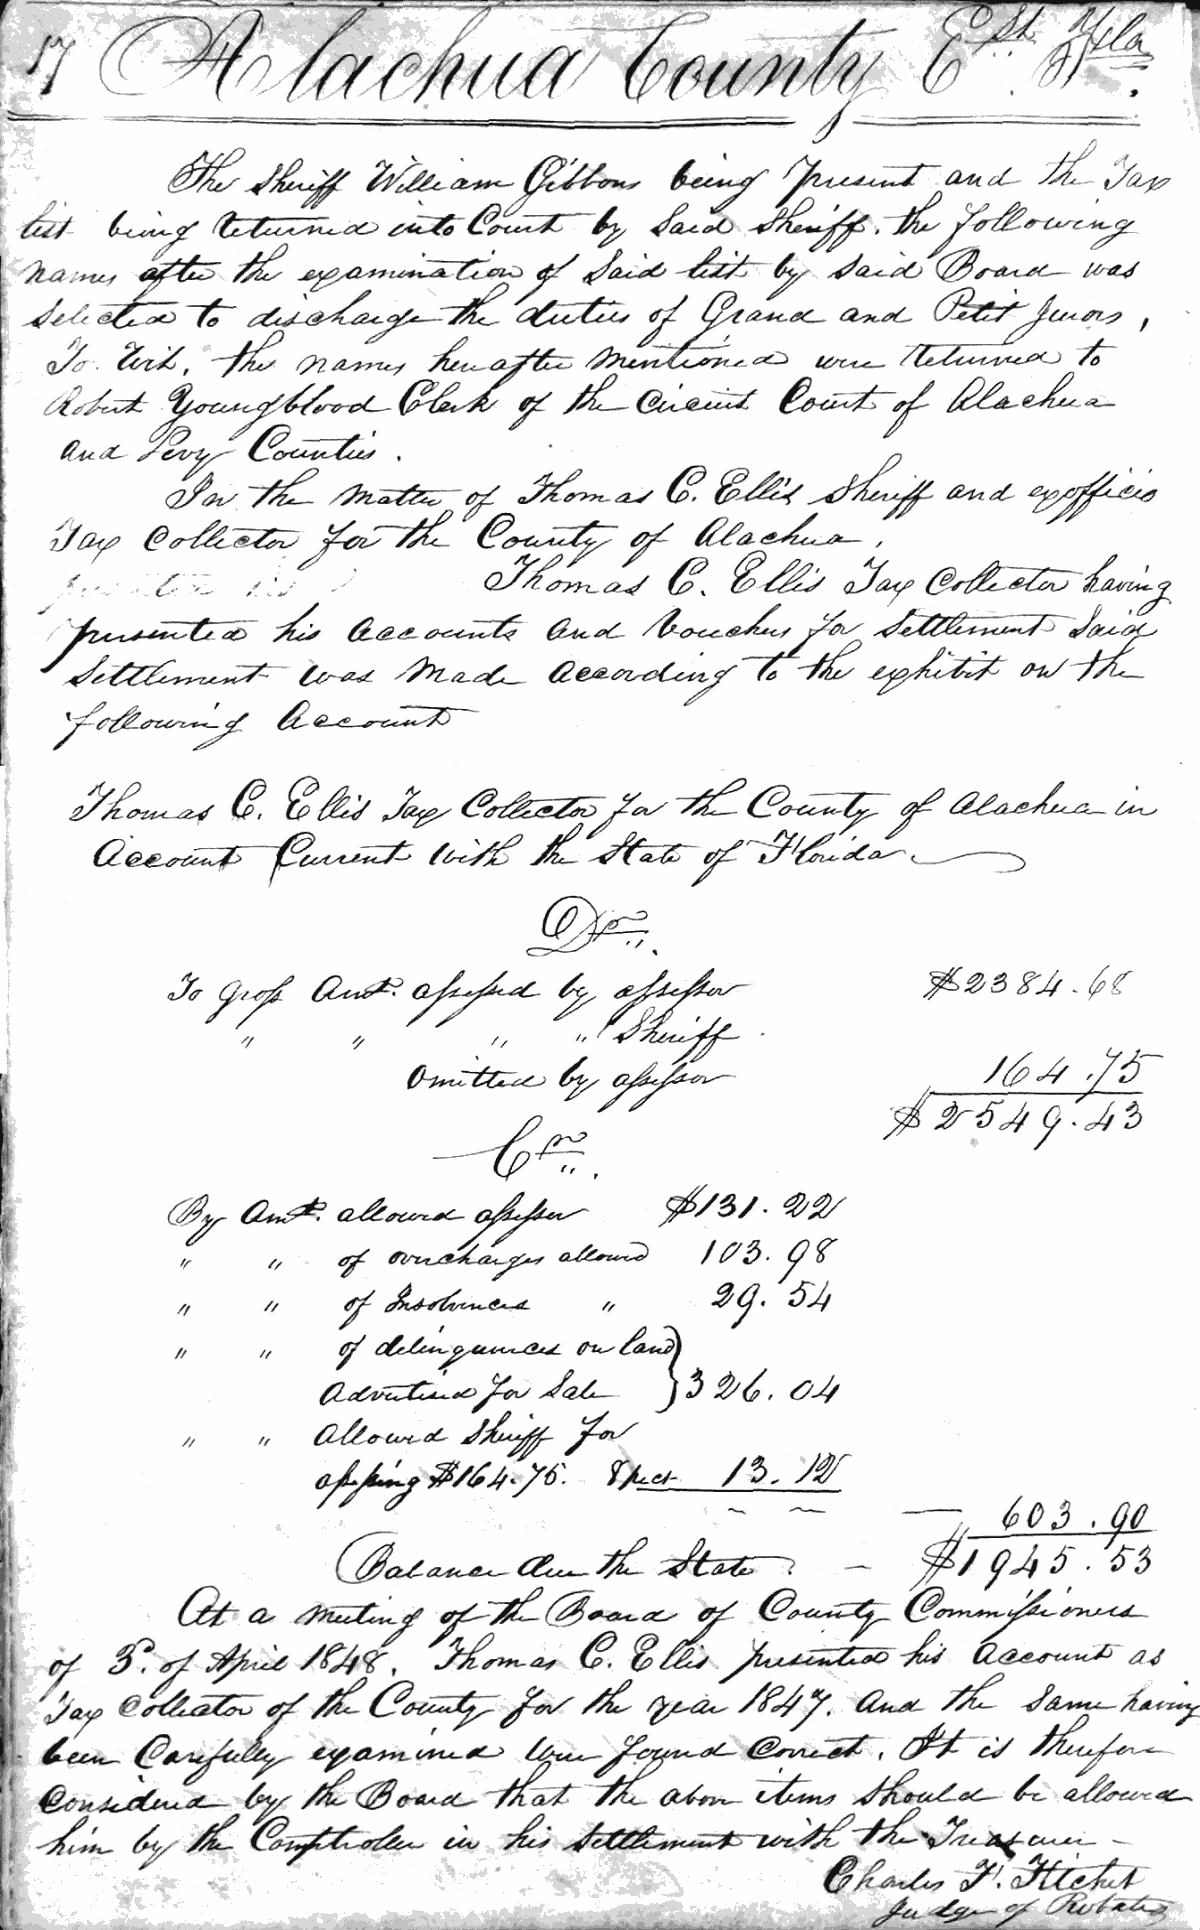 17 Alachua County Est. Fla.
The Sheriff William Gibbons being present and the Tax
list being returned into Court by Said Sheriff. the following
names after the examination of Said list by said Board was
Selected to discharge the duties of Grand and Petit Jurors,
To Wit. the names hereafter mentioned were returned to
Robert Youngblood Clerk of the Circuit Court of Alachua
and Levy Counties.
In the matter of Thomas C. Ellis Sheriff and exofficio
Tax Collector for the County of Alachua.
Thomas C. Ellis Tax Collector having
presented his accounts and Vouchers for Settlement Said
Settlement was Made according to the exhibit on the
following account
Thomas C. Ellis Tax Collector for the County of Alachua in
Account Current with the State of Florida.
Dr.
To Gross Amt. assessed by assessor $2384.68
" " " " Sheriff
Omitted by assessor 164.75
$2549.43
Cr.
By Amt. allowed assessor $131.22
" " of overcharges allowed 103.98
" " of Insolvences " 29.54
" " of delinquences on land
Advertised for Sale } 326.04
" " Allowed Sheriff for
assessing $164.75. 8 pr ct 13.12
603.90
Balance due the State. $1945.53
At a meeting of the Board of County Commissioners
of 3d. of April 1848. Thomas C. Ellis presented his account as
Tax Collector of the County for the year 1847. and the Same having
been Carefully examined were found Correct. It is therefore
Considered by the Board that the above items should be allowed
him by the Comptroller in his Settlement with the Treasurer
Charles F. Fitchet
Judge of Probate